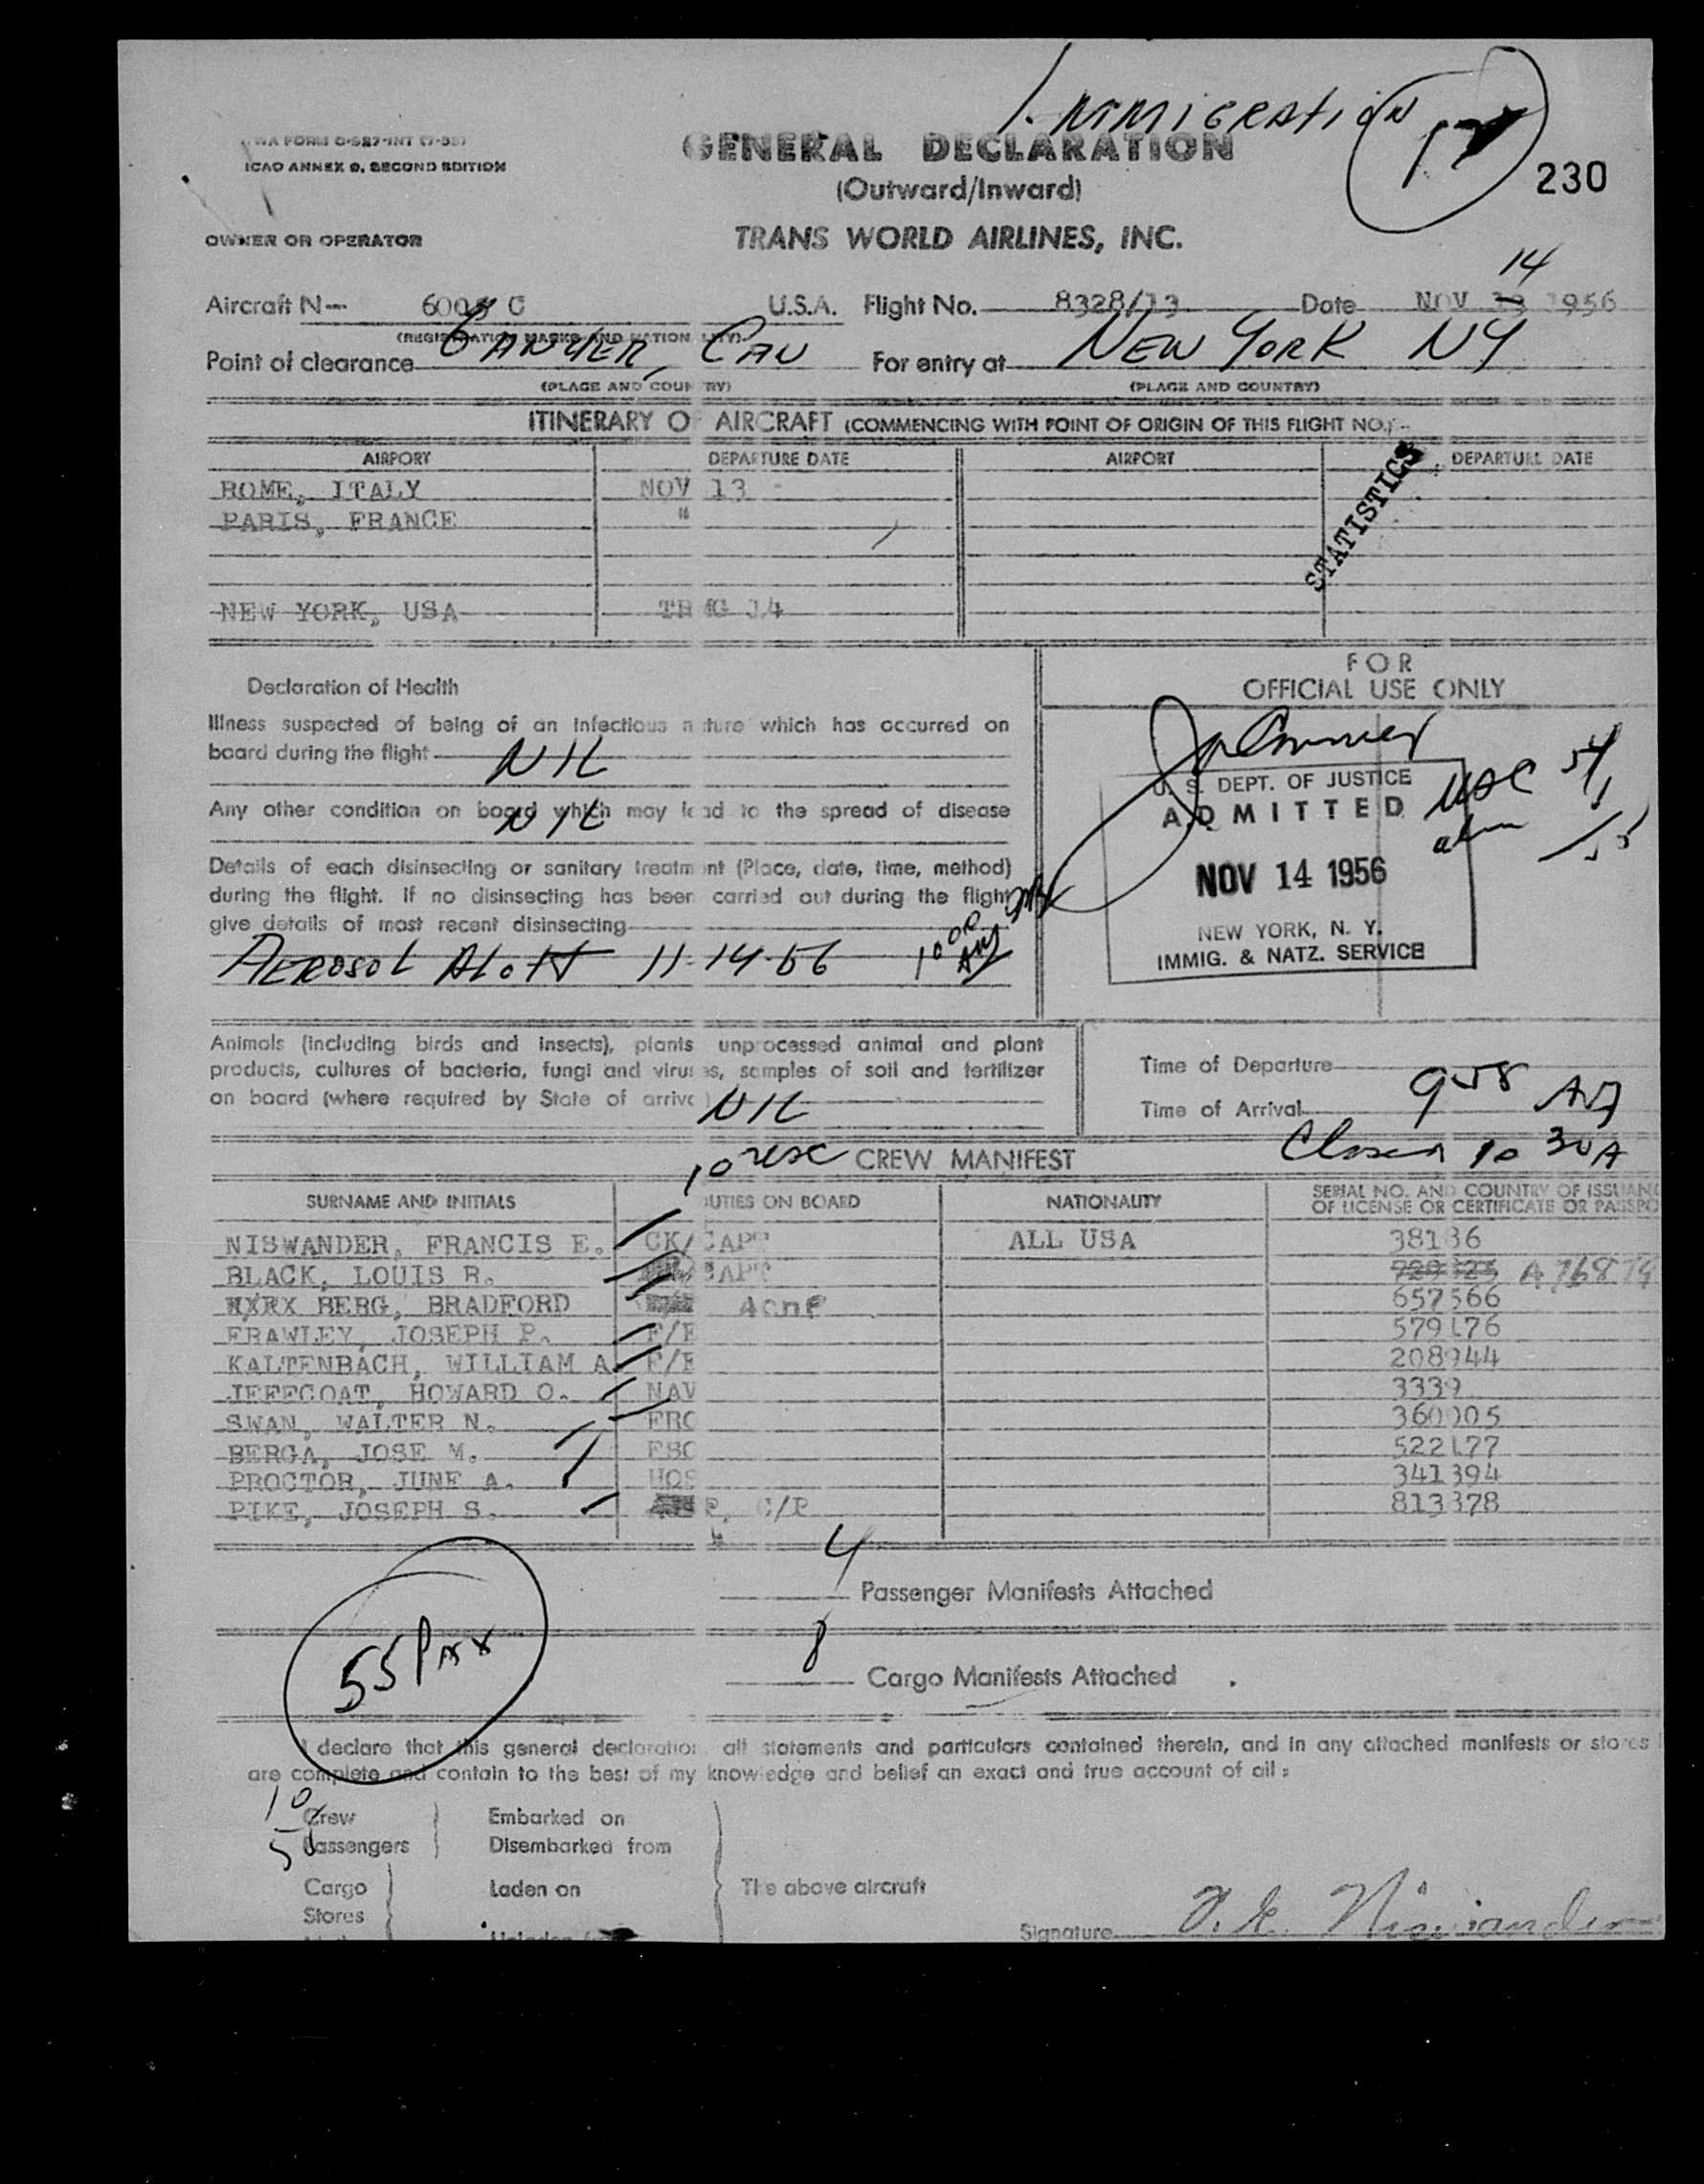 IMMIGRATION
17
TWA FORM O-527-INT (7-55)
ICAO ANNEX 9, SECOND EDITION
GENERAL DECLARATION
230
(Outward/Inward)
OWNER OR OPERATOR
TRANS WORLD AIRLINES, INC.
14
Aircraft N— 600 C U.S.A. Flight No. 8328/13 Date NOV 13 1956
(REGISTRATION MARKS AND NATIONALITY)
Point of clearance GANDER, CAN For entry at NEW YORK NY
(PLACE AND COUNTRY) (PLACE AND COUNTRY)
ITINERARY OF AIRCRAFT (COMMENCING WITH POINT OF ORIGIN OF THIS FLIGHT NO.)
AIRPORT DEPARTURE DATE AIRPORT DEPARTURE DATE
ROME, ITALY NOV 13
PARIS, FRANCE "
STATISTICS
NEW YORK, USA TRMG 14
FOR
OFFICIAL USE ONLY
Declaration of Health
Illness suspected of being of an infectious nature which has occurred on
board during the flight NIL
Any other condition on board which may lead to the spread of disease
NIL
Details of each disinsecting or sanitary treatment (Place, date, time, method)
during the flight. If no disinsecting has been carried out during the flight
give details of most recent disinsecting
AEROSOL ALOFT 11-14-56 10 00 AM
U. S. DEPT. OF JUSTICE
ADMITTED
USC 54/1
alien 1/55
NOV 14 1956
NEW YORK, N. Y.
IMMIG. & NATZ. SERVICE
Animals (including birds and insects), plants, unprocessed animal and plant
products, cultures of bacteria, fungi and viruses, samples of soil and fertilizer
on board (where required by State of arrival) NIL
Time of Departure
Time of Arrival 958 AM
Closed 10 30 A
10 USC CREW MANIFEST
SURNAME AND INITIALS DUTIES ON BOARD NATIONALITY SERIAL NO. AND COUNTRY OF ISSUANC
OF LICENSE OR CERTIFICATE OR PASSPO
NISWANDER, FRANCIS E. CK/CAPT ALL USA 38136
BLACK, LOUIS R. CAPT A 76874
BERG, BRADFORD 657566
FRAWLEY, JOSEPH P. F/E 579176
KALTENBACH, WILLIAM A F/E 208944
JEFFCOAT, HOWARD O. NAV 3339
SWAN, WALTER N. FRO 360005
BERGA, JOSE M. FSC 522177
PROCTOR, JUNE A. HOS 341394
PIKE, JOSEPH S. C/P 813378
4 Passenger Manifests Attached
55 Pax
Cargo Manifests Attached
I declare that this general declaration, all statements and particulars contained therein, and in any attached manifests or stores l
are complete and contain to the best of my knowledge and belief an exact and true account of all :
10 Crew Embarked on
Passengers Disembarked from
Cargo Laden on The above aircraft
Stores
Signature F. E. Niswander